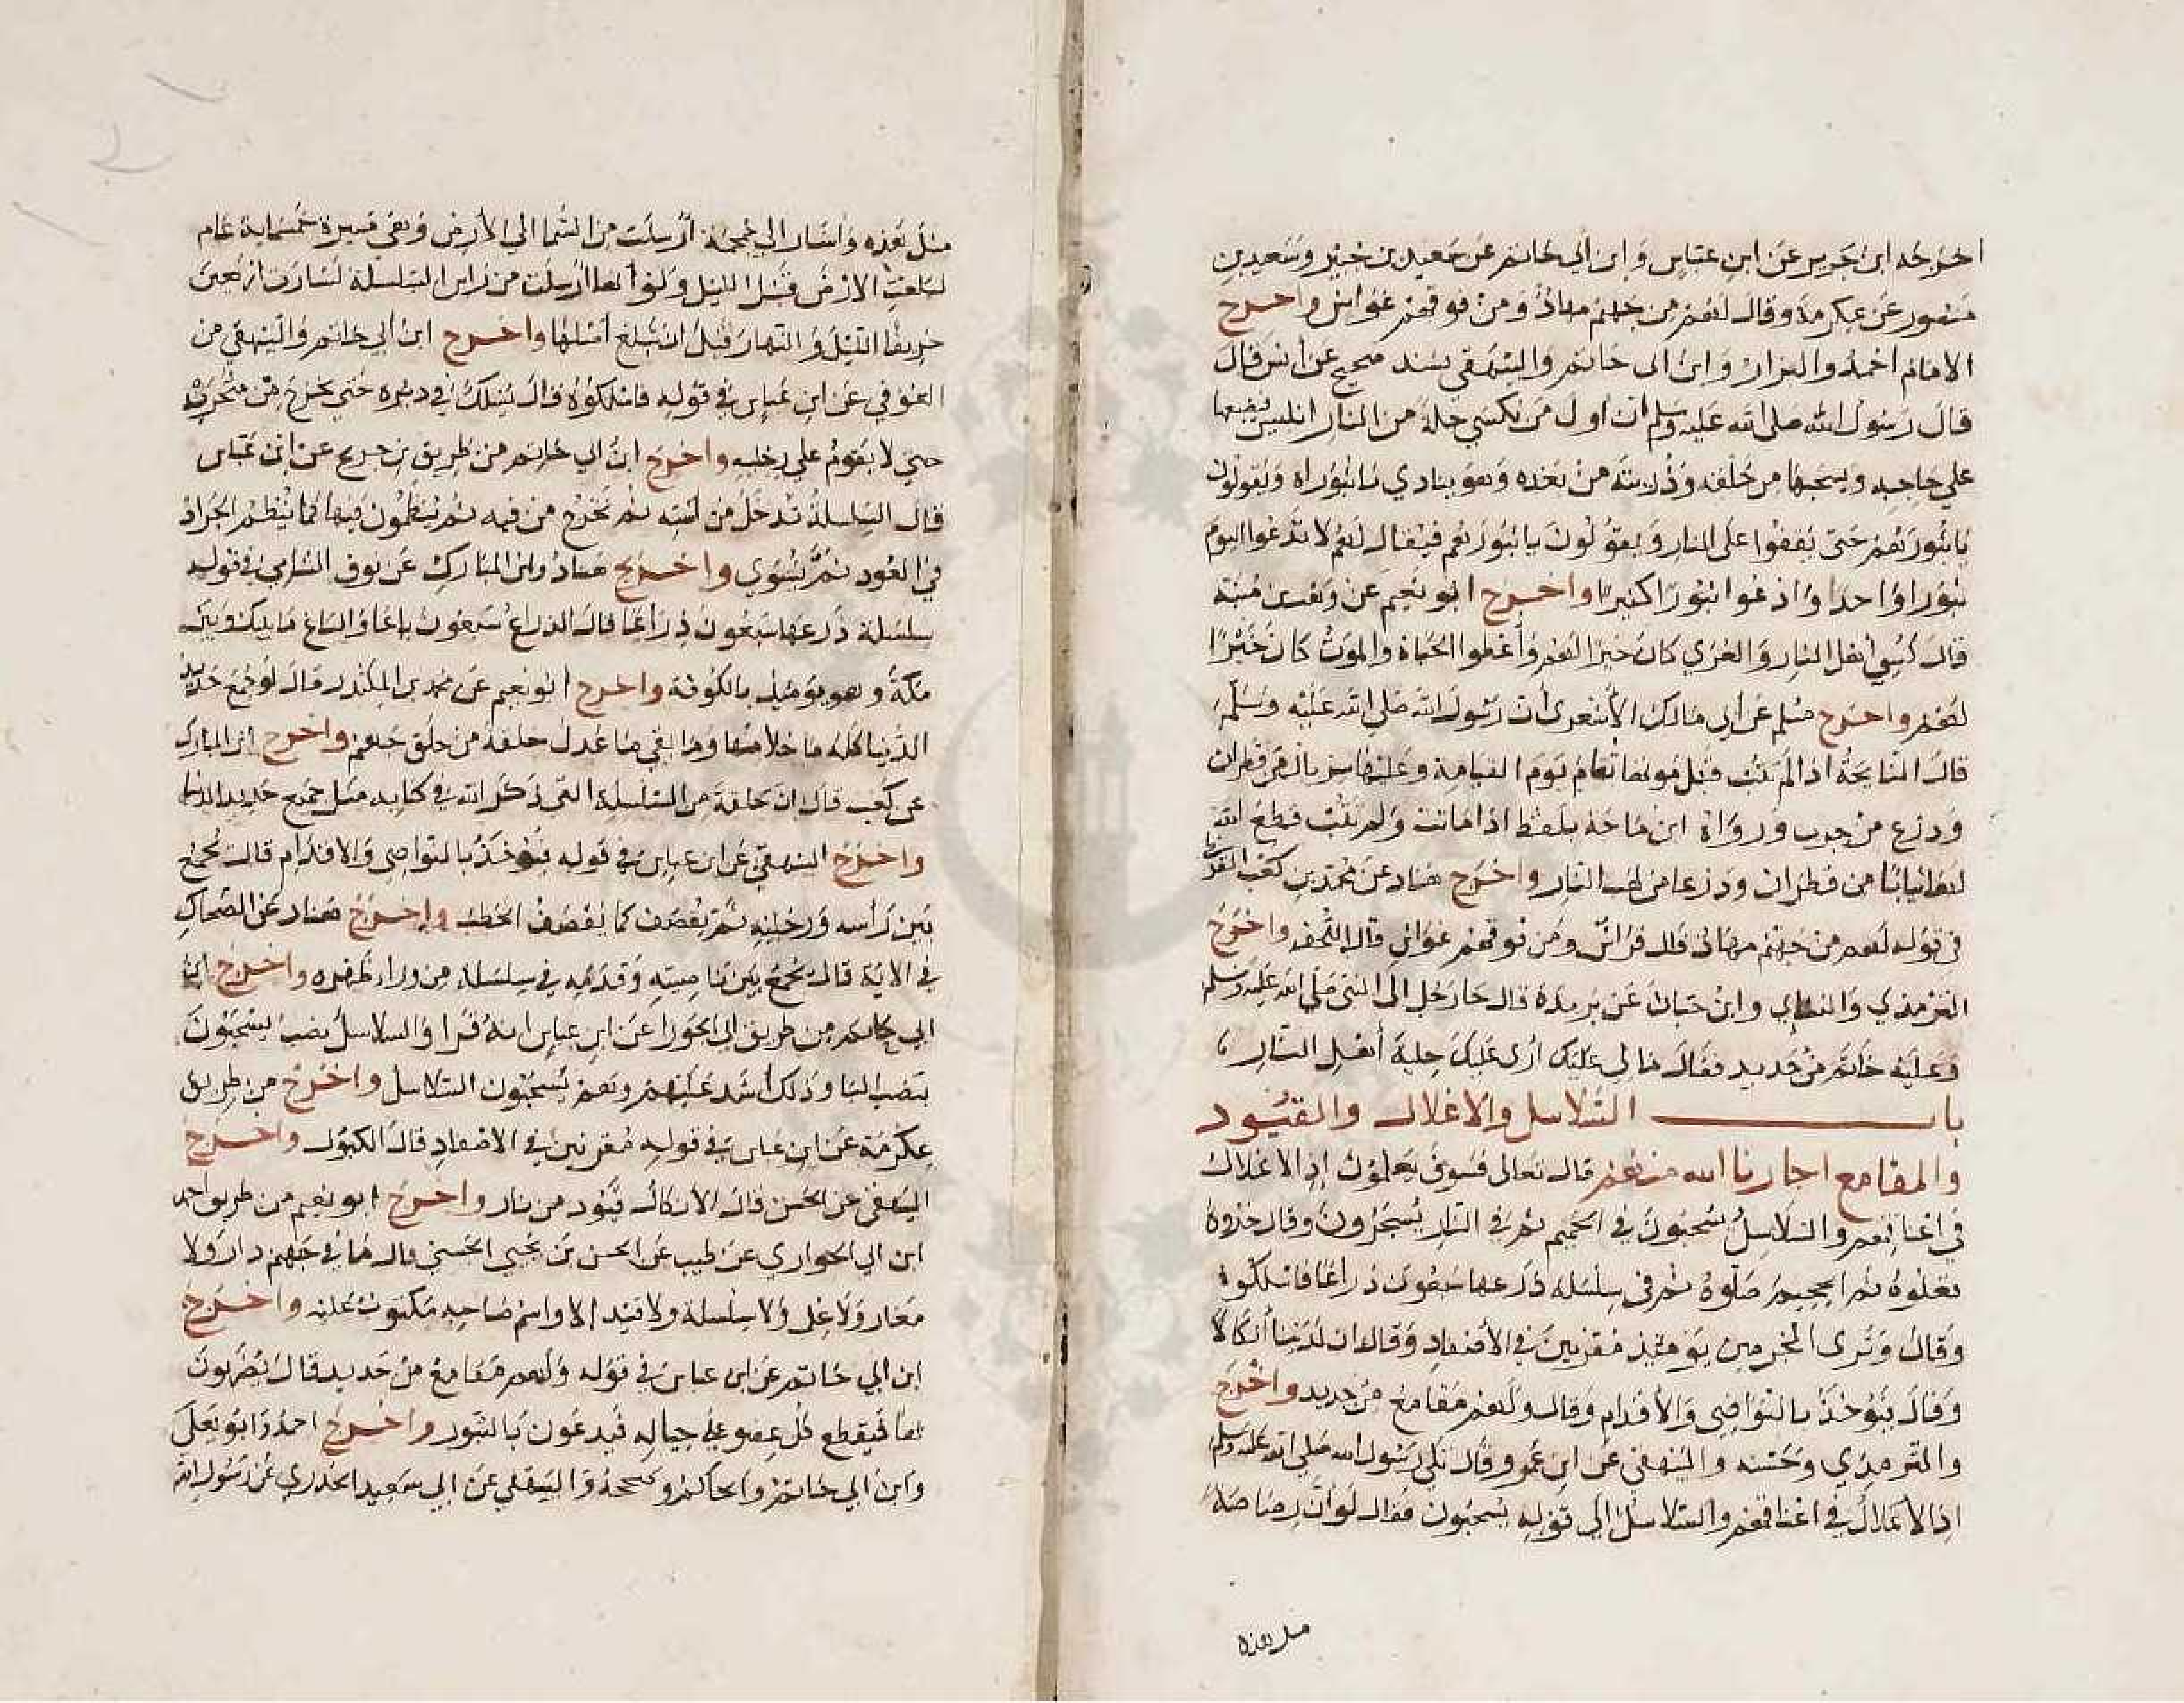 اخرجه ابن جرير عن ابن عباس وابن ابي حاتم عن سعيد بن جبير وسعيد بن
منصور عن عكرمة وقال لهم من جهنم مهاد ومن فوقهم غواش واخرج
الامام احمد والبزار وابن ابي حاتم والبيهقي بسند صحيح عن انس قال
قال رسول الله صلى الله عليه وسلم ان اول من يكسي حلة من النار ابليس يضعها
على حاجبه ويسحبها من خلفه وذريته من بعده وهو ينادي يا ثبوراه ويقولون
يا ثبورهم حتى يقفوا على النار ويقولون يا ثبورهم فيقال لهم لا تدعوا اليوم
ثبورا واحدا وادعوا ثبورا كثيرا واخرج ابو نعيم عن وهب بن منبه
قال كسي اهل النار والعري كان خيرا لهم واعطوا الحياة والموت كان خيرا
لهم واخرج مسلم عن ابي مالك الاشعري ان رسول الله صلى الله عليه وسلم
قال النايحة اذا لم تتب قبل موتها تقام يوم القيامة وعليها سربال من قطران
ودرع من جرب ورواه ابن ماجه بلفظ اذا ماتت ولم تتب قطع الله
لها ثيابا من قطران ودرعا من لهب النار واخرج هناد عن محمد بن كعب القرظي
في قوله لهم من جهنم مهاد قال فراش ومن فوقهم غواش قال اللحف واخرج
الترمذي والنساي وابن حبان عن بريدة قال جا رجل الى النبي صلى الله عليه وسلم
وعليه خاتم من حديد فقال مالي عليك ارى عليك حلية اهل النار
باب السلاسل والاغلال والقيود
والمقامع اجارنا الله منهم قال تعالى فسوف يعلمون اذ الاغلال
في اعناقهم والسلاسل يسحبون في الحميم ثم في النار يسجرون وقال خذوه
فغلوه ثم الجحيم صلوه ثم في سلسلة ذرعها سبعون ذراعا فاسلكوه
وقال وترى المجرمين يومئذ مقرنين في الاصفاد وقال ان لدينا انكالا
وقال فيؤخذ بالنواصي والاقدام وقال ولهم مقامع من حديد واخرج
والترمذي وحسنه والبيهقي عن ابن عمرو قال تلي رسول الله صلى الله عليه وسلم
اذ الاغلال في اعناقهم والسلاسل الى قوله يسحبون فقال لو ان رصاصة
مثل هذه
مثل هذه واشار الي جمجمة ارسلت من السما الي الارض وهي مسيرة خمسماية عام
لبلغت الارض قبل الليل ولو انها ارسلت من راس السلسلة لسارت اربعين
خريفا الليل والنهار قبل ان تبلغ اصلها واخرج ابن ابي حاتم والبيهقي من
العوفي عن ابن عباس في قوله فاسلكوه قال يسلك في دبره حتي يخرج من منخريه
حتي لا يقوم علي رجليه واخرج ابن ابي حاتم من طريق بن جريج عن ابن عباس
قال السلسلة تدخل من استه ثم تخرج من فيه ثم ينظمون فيها كما ينظم الجراد
في العود ثم يشوي واخرج هناد وابن المبارك عن نوف الشامي في قوله
سلسلة ذرعها سبعون ذراعا قال الذراع سبعون باعا والباع ما بينك وبين
مكة وهو يومئذ بالكوفة واخرج ابو نعيم عن محمد بن المنكدر قال لو جمع حديد
الدنيا كله ما خلا منها وما بقي ما عدل حلقة من حلق جهنم واخرج ابن المبارك
عن كعب قال ان حلقة من السلسلة التي ذكر الله في كتابه مثل جميع حديد الدنيا
واخرج البيهقي عن ابن عباس في قوله فيؤخذ بالنواصي والاقدام قال يجمع
بين راسه ورجليه ثم يقصف كما يقصف الحطب واخرج هناد عن الضحاك
في الاية قال يجمع بين ناصيته وقدميه في سلسلة من وراء ظهره واخرج ابن
ابي حاتم من طريق ابي الجوزا عن ابن عباس انه قرا والسلاسل بنصب يسحبون
بنصب اليا وذلك اشد عليهم وهم يسحبون السلاسل واخرج من طريق
عكرمة عن ابن عباس في قوله مقرنين في الاصفاد قال الكبول واخرج
البيهقي عن الحسن قال الانكال قيود من نار واخرج ابو نعيم من طريق احمد
ابن ابي الحواري عن طيب عن الحسن بن يحيى الحسني قال ما في جهنم دار ولا
مغار ولا غل ولا سلسلة ولا قيد الا واسم صاحبه مكتوب عليه واخرج
ابن ابي حاتم عن ابن عباس في قوله ولهم مقامع من حديد قال يضربون
بها فيقطع كل عضو علي حياله فيدعون بالثبور واخرج احمد وابو يعلى
وابن ابي حاتم والحاكم وصححه والبيهقي عن ابي سعيد الخدري عن رسول الله